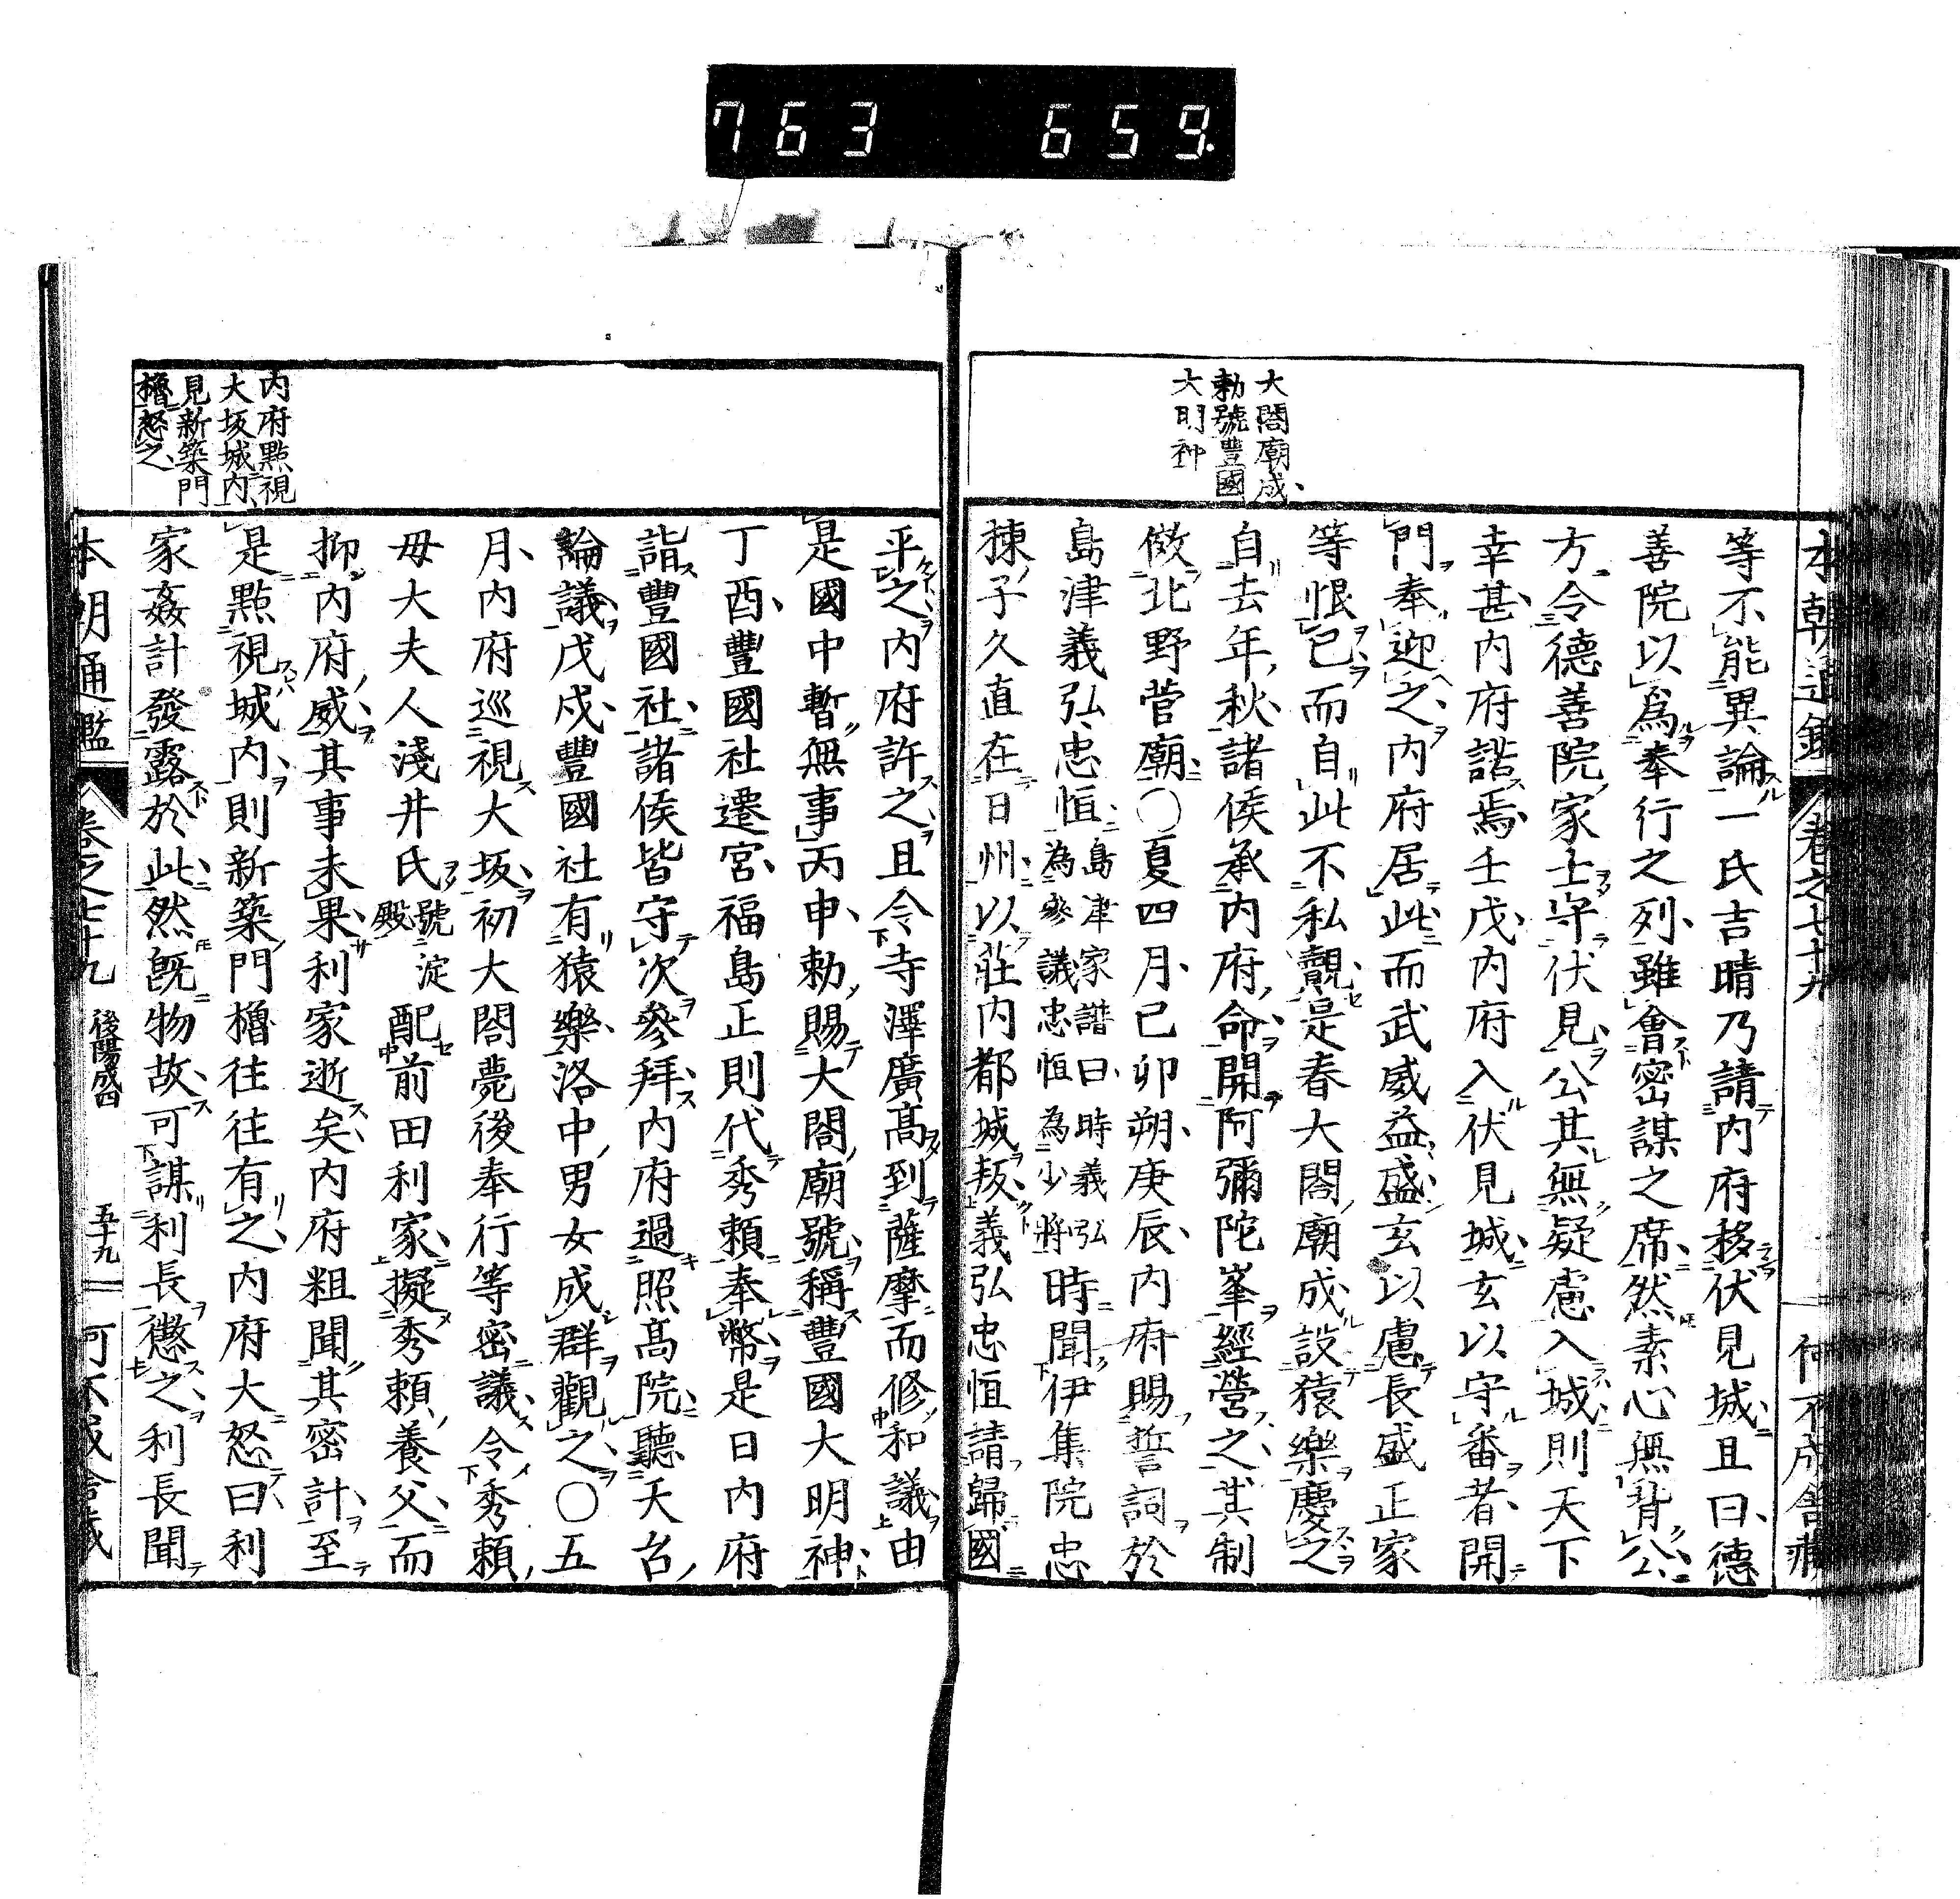 763 659.
大閤廟成
勅號豐國
大明神
本朝通鑑 卷之七十九
等不能異論一氏吉晴乃請内府移伏見城且曰德
善院以爲奉行之列雖會密謀之席然素心無背公
方令德善院家士守伏見公其無疑慮入城則天下
幸甚内府諾焉壬戌内府入伏見城玄以守番者開
門奉迎之内府居此而武威益盛玄以慮長盛正家
等恨已而自此不私覿是春大閤廟成設猿樂慶之
自去年秋諸侯承内府命開阿彌陀峯經營之其制
倣北野菅廟〇夏四月己卯朔庚辰内府賜誓詞於
島津義弘忠恒島津家譜曰時義弘為參議忠恒為少將時聞伊集院忠
棟子久直在日州以莊内都城叛義弘忠恒請歸國
平之内府許之且令寺澤廣高到薩摩而修和議由
是國中暫無事丙申勅賜大閤廟號稱豐國大明神
丁酉豐國社遷宮福島正則代秀賴奉幣是日内府
詣豐國社諸侯皆守次參拜内府過照高院聽天台
論議戊戌豐國社有猿樂洛中男女成群觀之〇五
月内府巡視大坂初大閤薨後奉行等密議令秀賴
毋大夫人淺井氏號淀殿配前田利家擬秀賴養父而
抑内府威其事未果利家逝矣内府粗聞其密計至
是點視城内則新築門櫓往往有之内府大怒曰利
家姦計發露於此然既物故可謀利長懲之利長聞
内府點視
大坂城内
見新築門
櫓怒之
本朝通鑑 卷之七十九 後陽成四 五十九